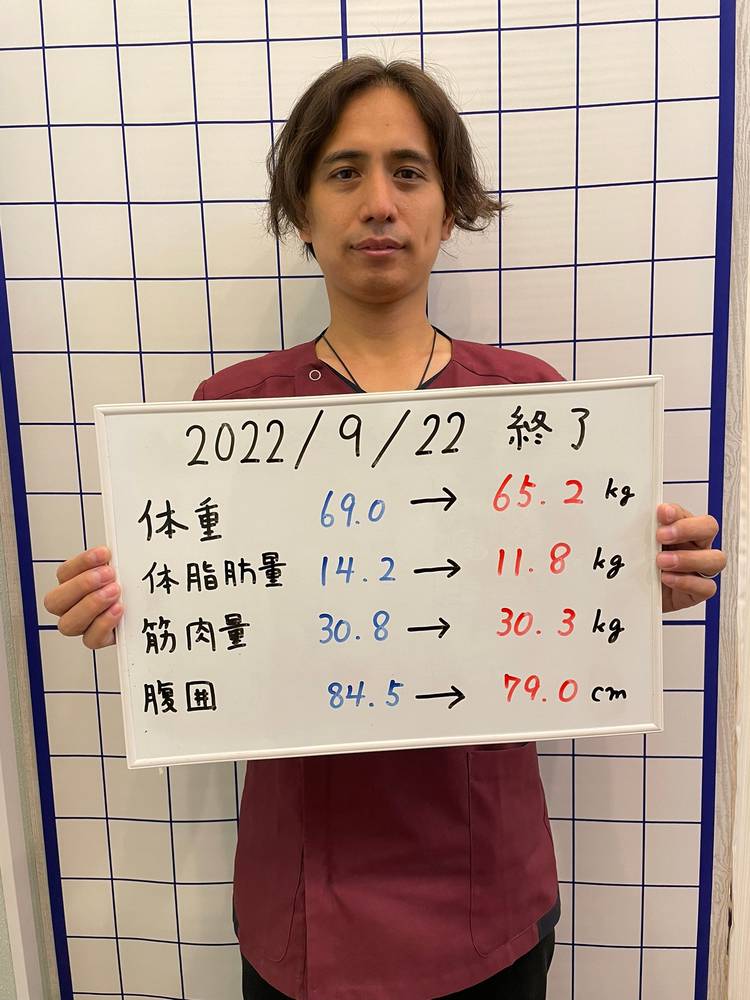 2022/9/22 終了
体重 69.0 → 65.2 kg
体脂肪量 14.2 → 11.8 kg
筋肉量 30.8 → 30.3 kg
腹囲 84.5 → 79.0 cm